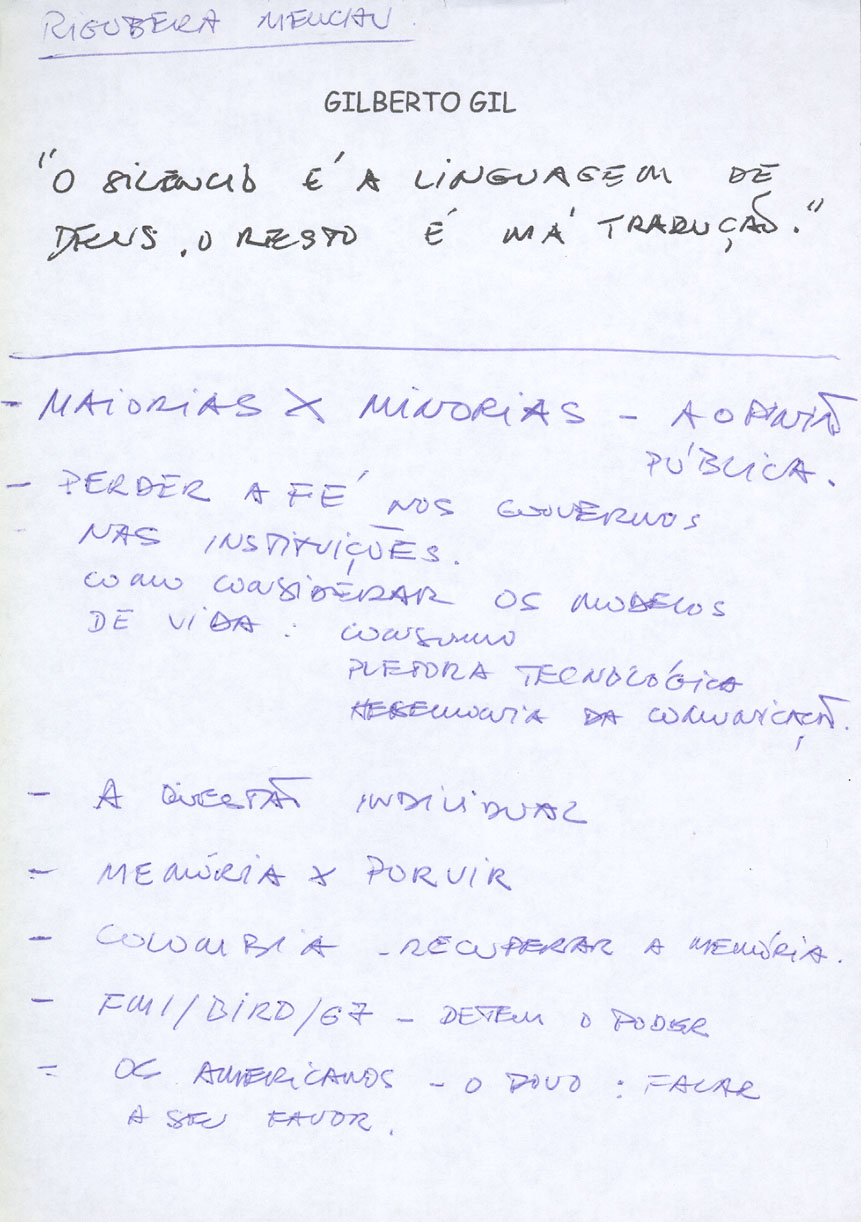 RIGOBERTA MENCHÚ
GILBERTO GIL
"O SILÊNCIO É A LINGUAGEM DE
DEUS, O RESTO É MÁ TRADUÇÃO."
- MAIORIAS X MINORIAS - A OPINIÃO
PÚBLICA.
- PERDER A FÉ NOS GOVERNOS
NAS INSTITUIÇÕES.
COMO CONSIDERAR OS MODELOS
DE VIDA: CONSUMO
PLETORA TECNOLÓGICA
HEGEMONIA DA COMUNICAÇÃO.
- A QUESTÃO INDIVIDUAL
- MEMÓRIA X PORVIR
- COLOMBIA - RECUPERAR A MEMÓRIA.
- FMI/BIRD/G7 - DETEM O PODER
- OS AMERICANOS - O POVO: FALAR
A SEU FAVOR.